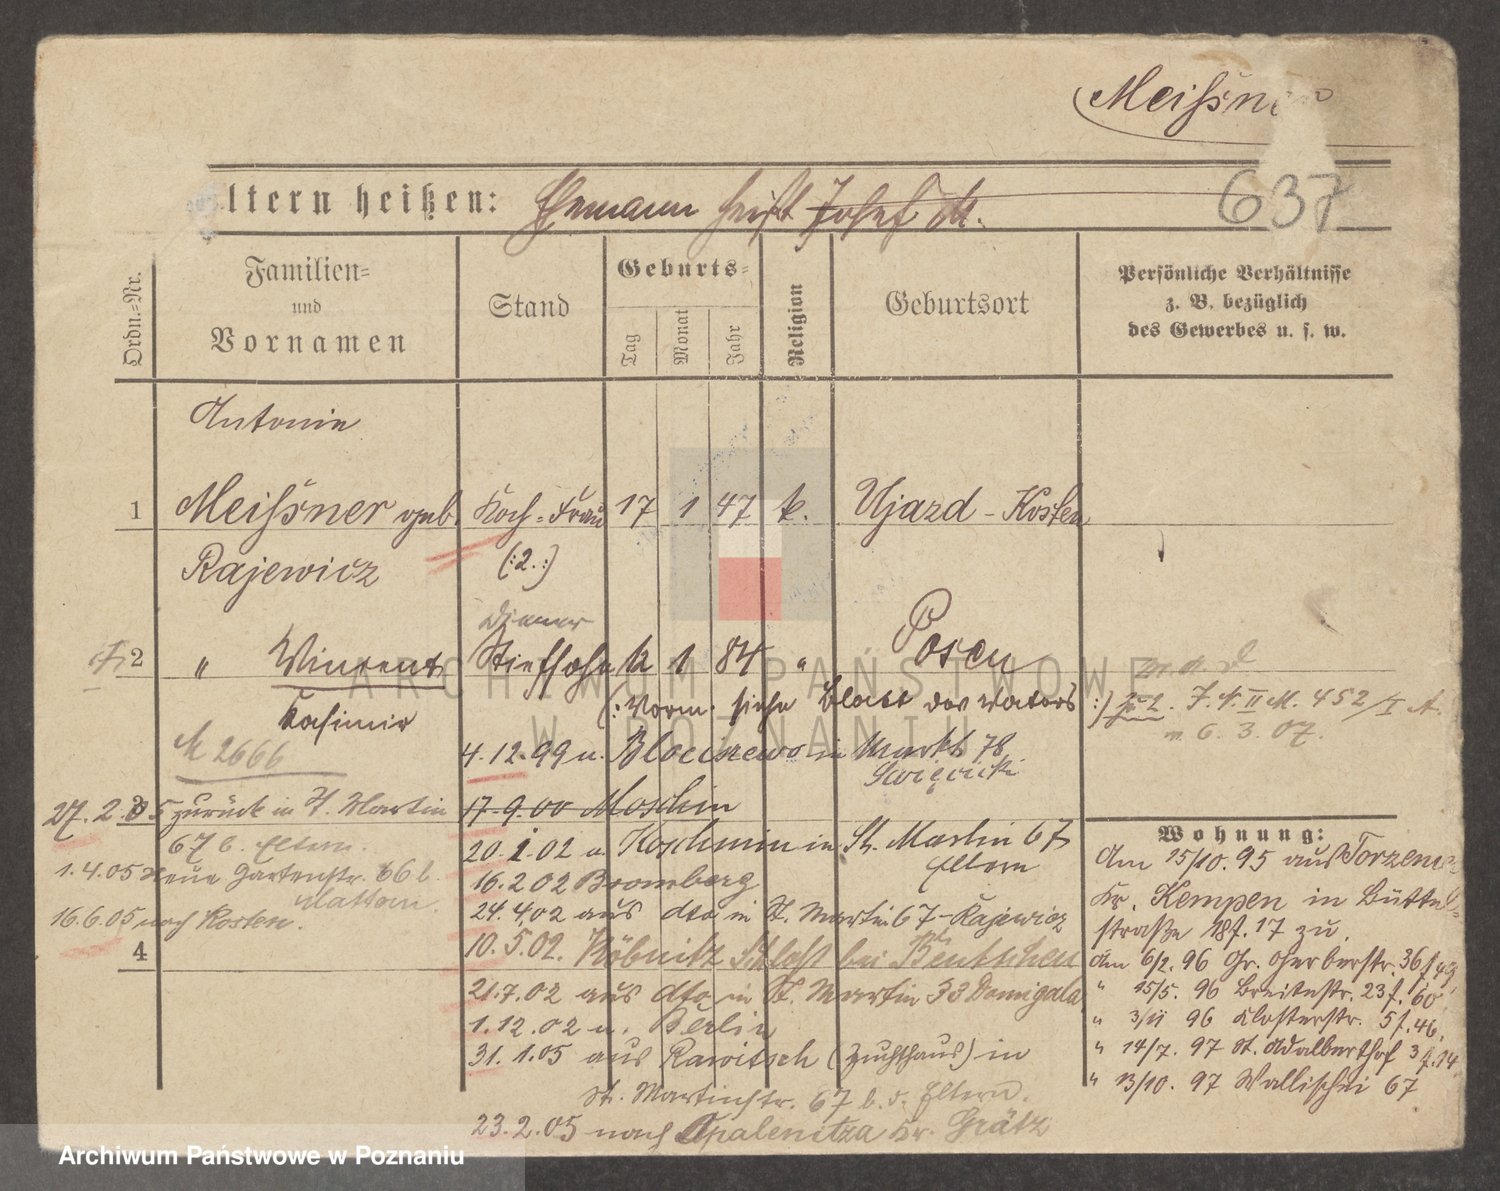 Meißner
637
ltern heißen: Ehemann heißt Josef M.
Ordn.-Nr.
Familien-
und
Vornamen
Stand
Geburts-
Tag
Monat
Jahr
Religion
Geburtsort
Persönliche Verhältnisse
z. B. bezüglich
des Gewerbes u. s. w.
Antonie
1 Meißner geb. Koch-Frau 17 1 47 k. Ujazd - Kosten
Rajewicz (:2.:)
Diener
2 " Vincent Stiefsohn 12 1 84 " Posen
Kasimir (: Vorm. siehe Blatt des Vaters :)
J. N. II M. 452/I A.
6. 3. 07.
M 2666
4.12.99 n. Blociszewo in Markt 78
Swięcicki
3
27.2.05 zurück in St. Martin
67 b. Eltern.
1.4.05 neue Gartenstr. 66 b.
16.6.05 nach Kosten.
4
17.9.00 Moschin
20.1.02 a. Koschmin in St. Martin 67
Eltern
16.2.02 Bromberg
24.4.02 aus dto in St. Martin 67 - Rajewicz
10.5.02. Köbnitz Schloß bei Bentschen
21.7.02 aus dto in St. Martin 33 Domigala
1.12.02 n. Berlin
31.1.05 aus Rawitsch (Zuchthaus) in
St. Martinstr. 67 b. d. Eltern.
23.2.05 nach Opalenitza Kr. Grätz
Wohnung:
Am 15/10.95 aus Torzeniec
Kr. Kempen in Büttel-
straße 18 f. 17 zu.
Am 6/2. 96 Gr. Gerberstr. 36 f. 49
" 15/5. 96 Breitestr. 23 f. 60
" 3/11 96 Klosterstr. 5 f. 46.
" 14/7. 97 St. Adalberthof 3 f. 14
" 13/10. 97 Wallischei 67
ARCHIWUM PAŃSTWOWE
W POZNANIU
Archiwum Państwowe w Poznaniu